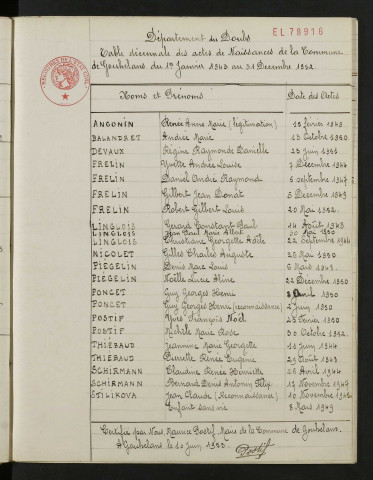 EL78916
Département du Doubs
Table décennale des actes de Naissances de la Commune
de Gouhelans du 1er Janvier 1943 au 31 Décembre 1952.
Noms et Prénoms Date des Actes
ANGONIN Renée Anne Marie (légitimation) février
BALANDRET Andrée Marie 13 Octobre 1950
DEVAUX Régine Raymonde Danielle Juin 1951
FRELIN Yvette Andrée Louise 7 Décembre 1944
FRELIN Daniel Ondre Raymond 5 septembre 1947
FRELIN Gilbert Jean Donat 5 Décembre 1949
FRELIN Robert Gilbert Louis 20 Mai 1952.
LINGLOIS Gérard Constant Paul 14 Août 1943
LINGLOIS Jean Paul Marie Albert 30 Mai 1950
LINGLOIS Christiane Georgette Adèle 22 Septembre 1944
NICOLET Gilles Charles Auguste 25 Mai 1950
PIEGELIN Denis Marc Louis 6 Mars 1949.
PIEGELIN Noëlle Lucie Aline 22 Décembre 1950
PONCET Guy Georges Henri Avril 1950
PONCET Guy Georges Henri (reconnaissance) Juin 1950
POSTIF Yves François Noël 25 Février 1950
POSTIF Michèle Marie Rose 30 Octobre 1952.
THIÉBAUD Jeannine Marie Georgette 11 Juin 1944
THIEBAUD Pierrette Renée Eugénie 29 Août 1948
SCHIRMANN Claudine Renée Henriette 26 Avril 1944
SCHIRMANN Bernard Denis Antonin Félix 17 Novembre 1947
STILIKOVA Jean Claude (Reconnaissance) 10 Novembre
Enfant sans vie 8 Mars 1949
Certifié par Nous, Maurice Postif, Maire de la Commune de Gouhelans.
A Gouhelans le 10 Juin 1953.
Postif